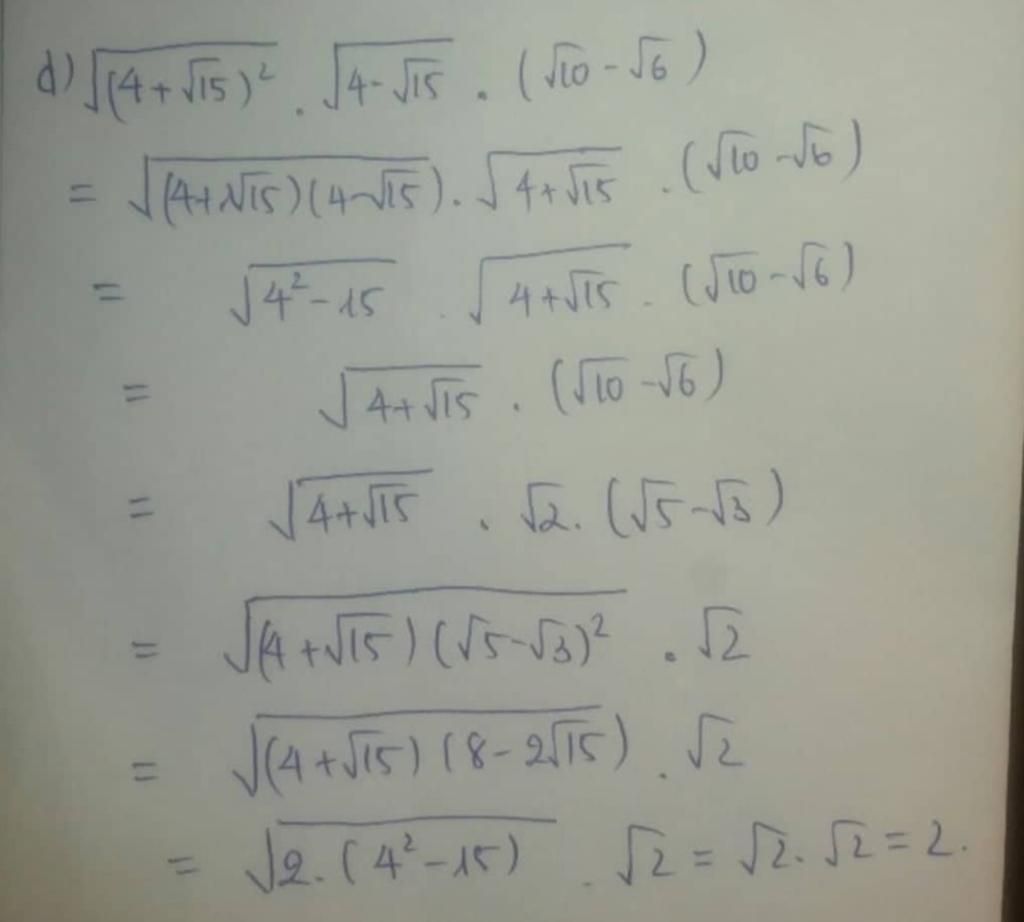 d) √((4+√15)²) . √(4-√15) . (√10 - √6)
= √((4+√15)(4-√15)) . √(4+√15) . (√10 - √6)
= √(4² - 15) . √(4+√15) . (√10 - √6)
= √(4+√15) . (√10 - √6)
= √(4+√15) . √2 . (√5 - √3)
= √((4+√15)(√5-√3)²) . √2
= √((4+√15)(8-2√15)) . √2
= √(2.(4²-15)) . √2 = √2 . √2 = 2.